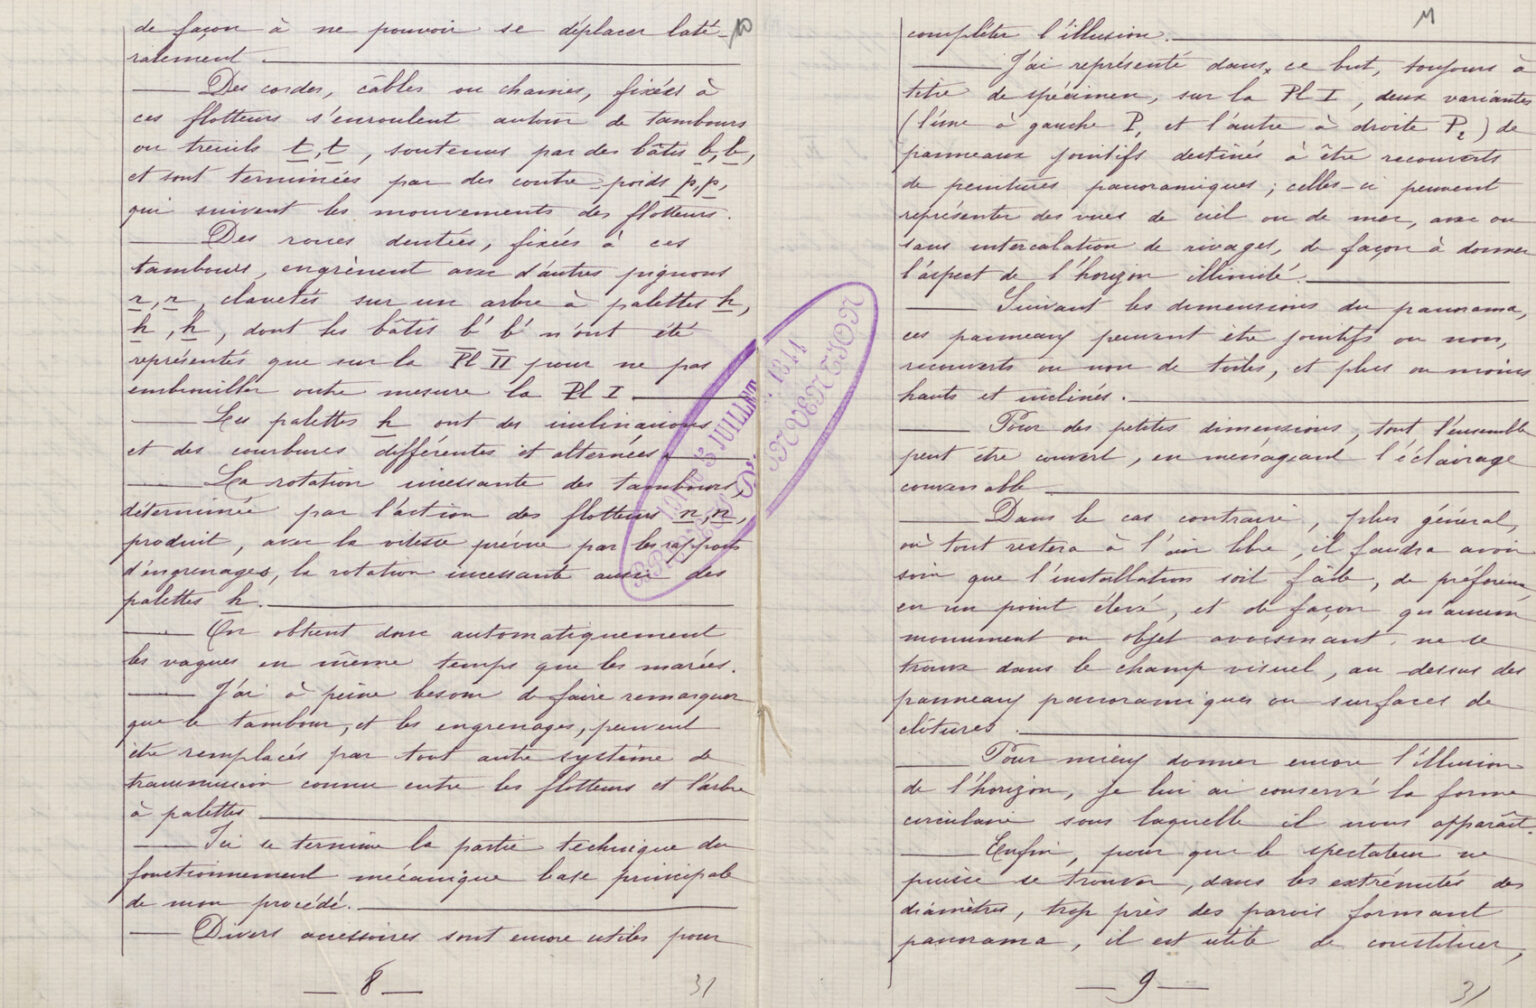 10
de façon à ne pouvoir se déplacer laté-
ralement.
Des cordes, câbles ou chaines, fixées à
ces flotteurs s'enroulent autour de tambours
ou treuils t, t, soutenus par des bâtis b, b,
et sont terminées par des contre-poids p, p,
qui suivent les mouvements des flotteurs.
Des roues dentées, fixées à ces
tambours, engrènent avec d'autres pignons
r, r, clavetés sur un arbre à palettes h,
h, h, dont les bâtis b' b' n'ont été
représentés que sur la Pl II pour ne pas
embrouiller outre mesure la Pl I.
Les palettes h ont des inclinaisons
et des courbures différentes et alternées.
La rotation incessante des tambours,
déterminée par l'action des flotteurs n, n,
produit, avec la vitesse prévue par les rapports
d'engrenages, la rotation incessante aussi des
palettes h.
On obtient donc automatiquement
les vagues en même temps que les marées.
J'ai à peine besoin de faire remarquer
que le tambour, et les engrenages, peuvent
être remplacés par tout autre système de
transmission connu entre les flotteurs et l'arbre
à palettes.
Ici se termine la partie technique du
fonctionnement mécanique base principale
de mon procédé.
Divers accessoires sont encore utiles pour
8
31
11
compléter l'illusion.
J'ai représenté dans ce but, toujours à
titre de spécimen, sur la Pl I, deux variantes
(l'une à gauche P1 et l'autre à droite P2) de
panneaux jointifs destinés à être recouverts
de peintures panoramiques; celles-ci peuvent
représenter des vues de ciel ou de mer, avec ou
sans intercalation de rivages, de façon à donner
l'aspect de l'horizon illimité.
Suivant les dimensions du panorama,
ces panneaux peuvent être jointifs ou non,
recouverts ou non de toiles, et plus ou moins
hauts et inclinés.
Pour des petites dimensions, tout l'ensemble
peut être couvert, en ménageant l'éclairage
convenable.
Dans le cas contraire, plus général,
où tout restera à l'air libre, il faudra avoir
soin que l'installation soit faite, de préférence
en un point élevé, et de façon qu'aucun
monument ou objet avoisinant ne se
trouve dans le champ visuel, au dessus des
panneaux panoramiques ou surfaces de
clôtures.
Pour mieux donner encore l'illusion
de l'horizon, je lui ai conservé la forme
circulaire sous laquelle il nous apparaît.
Enfin, pour que le spectateur ne
puisse se trouver, dans les extrémités des
diamètres, trop près des parois formant
panorama, il est utile de constituer,
9
31
JUILLET 1844
INVENTION